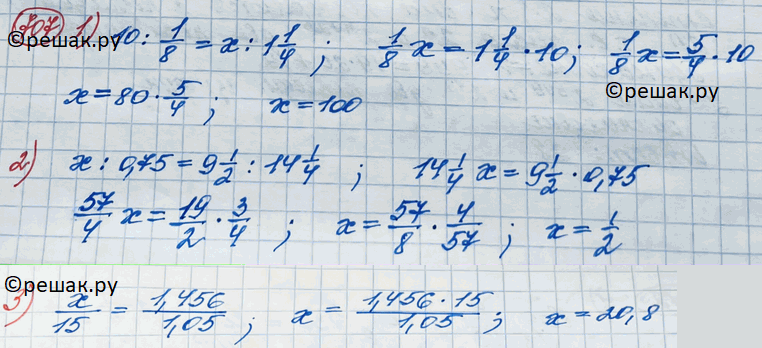 707 1) 10 : 1/8 = x : 1 1/4 ; 1/8 x = 1 1/4 · 10 ; 1/8 x = 5/4 · 10
©решак.ру
x = 80 · 5/4 ; x = 100
©решак.ру
2) x : 0,75 = 9 1/2 : 14 1/4 ; 14 1/4 x = 9 1/2 · 0,75
57/4 x = 19/2 · 3/4 ; x = 57/8 · 4/57 ; x = 1/2
©решак.ру
3) x/15 = 1,456/1,05 ; x = 1,456 · 15/1,05 ; x = 20,8